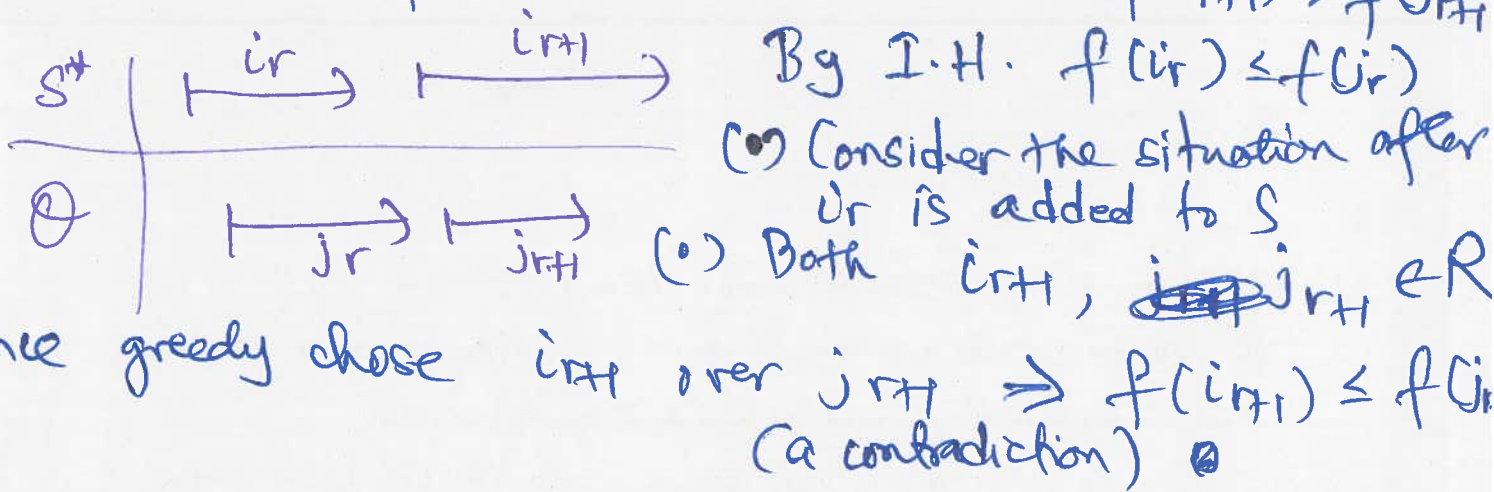 S* | i_r i_{r+1}
By I.H. f(i_r) ≤ f(j_r)
(•) Consider the situation after
i_r is added to S
O | j_r j_{r+1}
(•) Both i_{r+1}, j_{r+1} ∈ R
nce greedy chose i_{r+1} over j_{r+1} ⇒ f(i_{r+1}) ≤ f(j_r
(a contradiction)